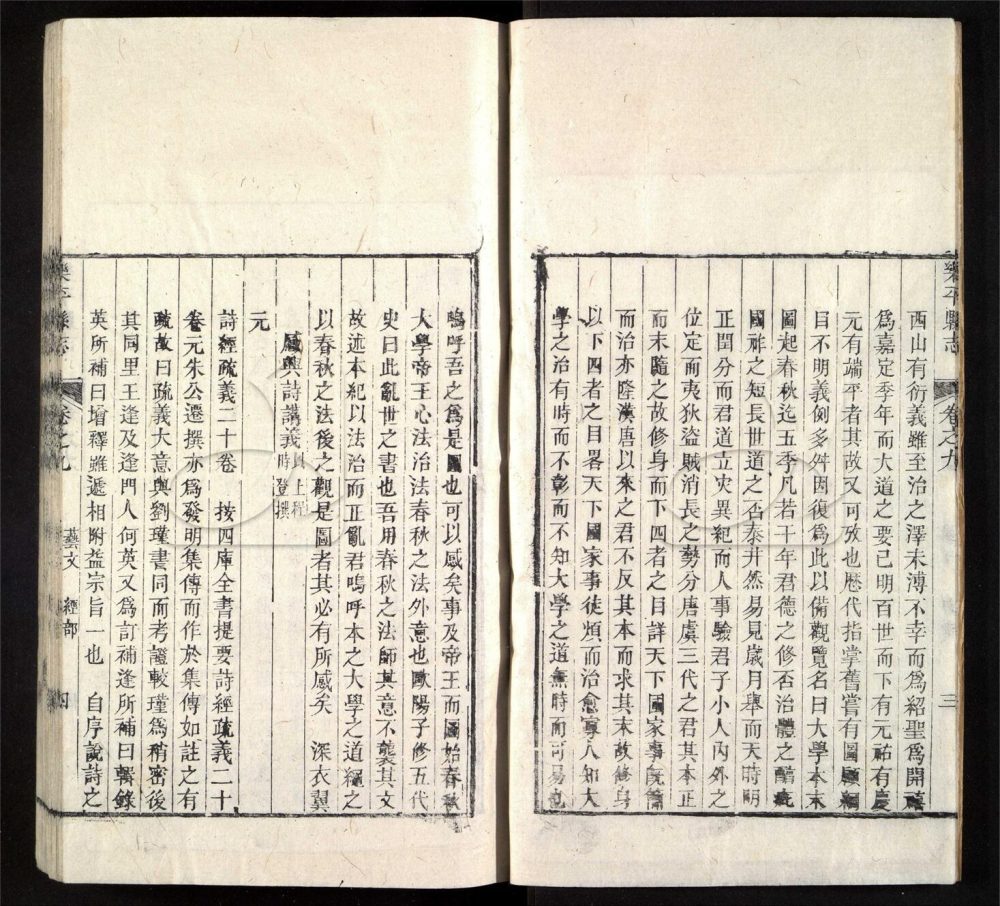 樂平縣志
卷之九
三
西山有衍義雖至治之澤未溥不幸而為紹聖為開禧
為嘉定季年而大道之要已明百世而下有元祐有慶
元有端平者其故又可攷也歷代指掌舊嘗有圖顧綱
目不明義例多舛因復為此以備觀覽名曰大學本末
圖起春秋迄五季凡若干年君德之修否治體之醇疵
國祚之短長世道之否泰井然易見歲月舉而天時明
正閏分而君道立灾異紀而人事驗君子小人內外之
位定而夷狄盜賊消長之勢分唐虞三代之君其本正
而末隨之故修身而下四者之目詳天下國家事既簡
而治亦隆漢唐以來之君不反其本而求其末故修身
以下四者之目畧天下國家事徒煩而治愈寡人知大
學之治有時而不彰而不知大學之道無時而可易也
嗚呼吾之為是圖也可以感矣事及帝王而圖始春秋
大學帝王心法治法春秋之法外意也歐陽子修五代
史曰此亂世之書也吾用春秋之法師其意不襲其文
故述本紀以法治而正亂君嗚呼本之大學之道繩之
以春秋之法後之觀是圖者其必有所感矣 深衣翼
感興詩講義以上程時登撰
元
詩經疏義二十卷 按四庫全書提要詩經疏義二十
卷元朱公遷撰亦為發明集傳而作於集傳如註之有
疏故曰疏義大意與劉瑾書同而考證較瑾為稍密後
其同里王逢及逢門人何英又為訂補逢所補曰輯錄
英所補曰增釋雖遞相附益宗旨一也 自序說詩之
樂平縣志
卷之九
藝文 經部
四